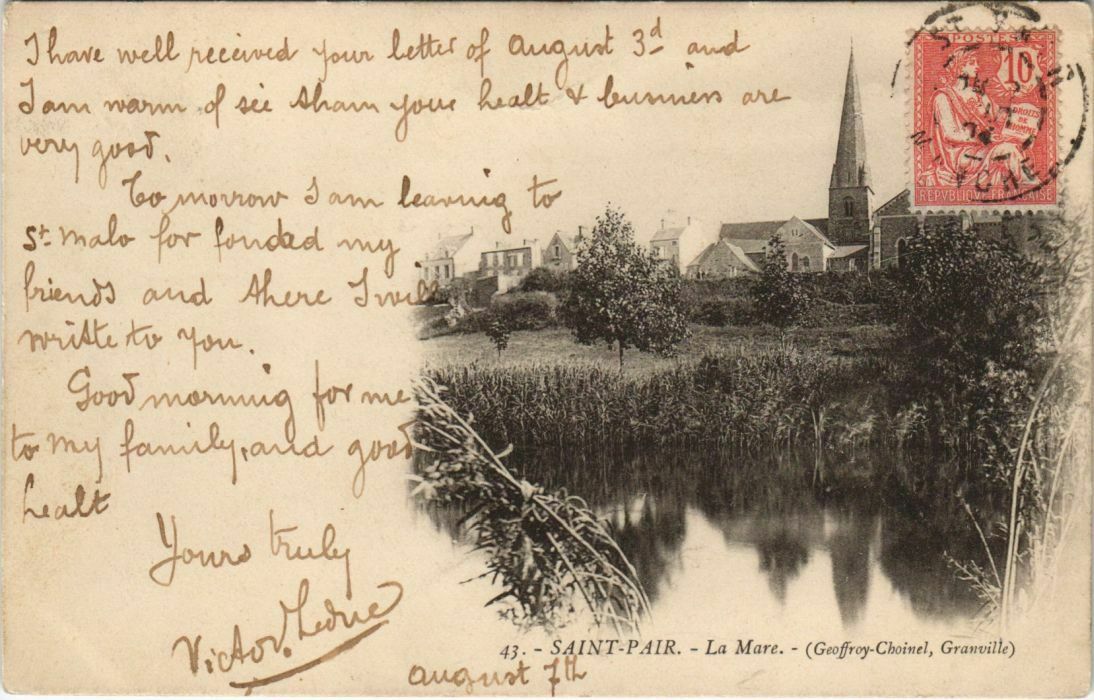 I have well received your letter of august 3d and
I am warm of see tham your healt & business are
very good.
To morrow I am leaving to
St Malo for fonded my
friends and there I will
writte to you.
Good morning for me
to my family, and good
healt
Yours truly
Victor Leduc
august 7th
POSTES
10
DROITS
DE
L'HOMME
REPVBLIQVE FRANÇAISE
43. - SAINT-PAIR. - La Mare. - (Geoffroy-Choinel, Granville)